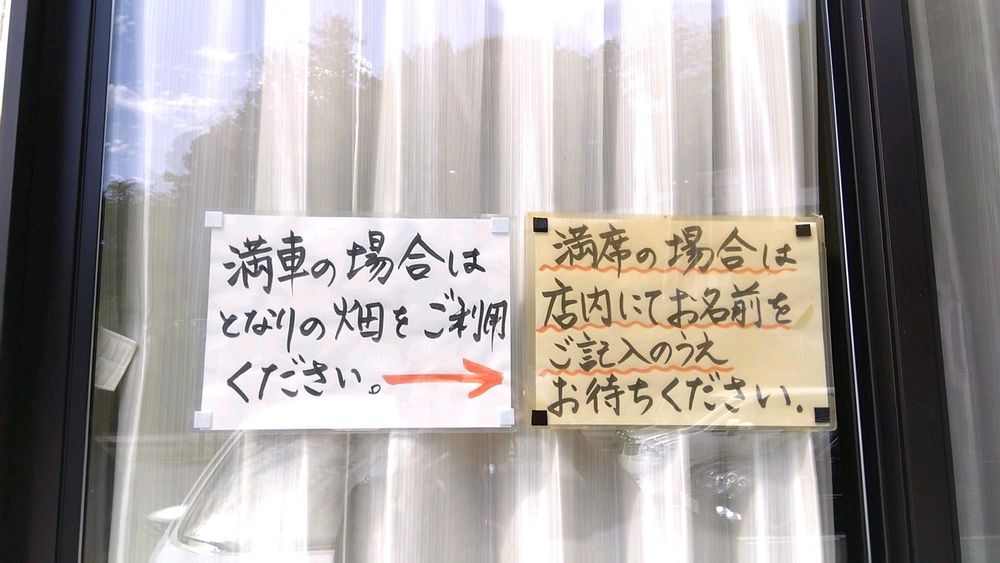 満車の場合は
となりの畑をご利用
ください。
満席の場合は
店内にてお名前を
ご記入のうえ
お待ちください.